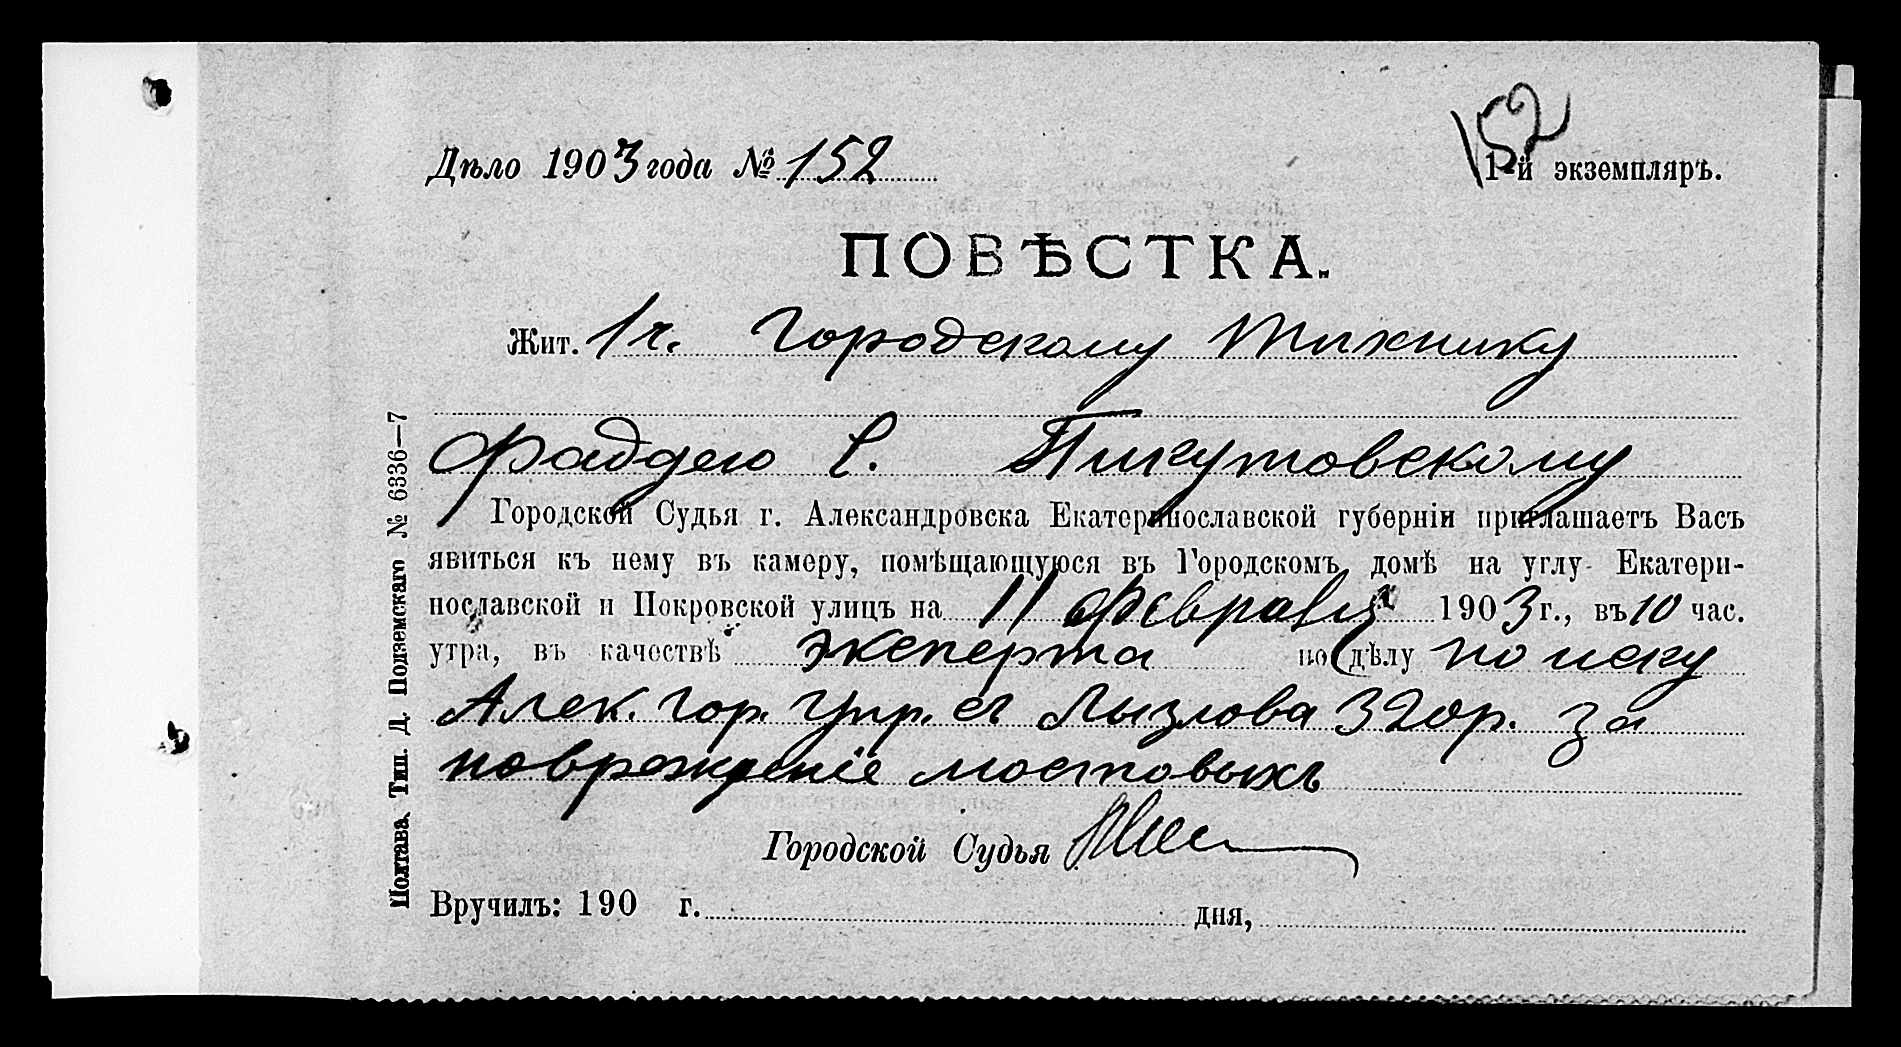 152
Дѣло 1903 года № 152
1-й экземпляръ.
ПОВѢСТКА.
Жит. 1 ч. Городскому Технику
Фаддею С. Пигутовскому
Городской Судья г. Александровска Екатеринославской губерніи приглашаетъ Васъ
явиться къ нему въ камеру, помѣщающуюся въ Городскомъ домѣ на углу Екатери-
нославской и Покровской улицъ на 11 февраля 1903 г., въ 10 час.
утра, въ качествѣ эксперта по дѣлу по иску
Алек. гор. Упр. съ Лызлова 320 р. за
поврежденіе мостовыхъ
Городской Судья
Вручилъ: 190 г. дня,
Полтава. Тип. Д. Подземскаго № 6336—7